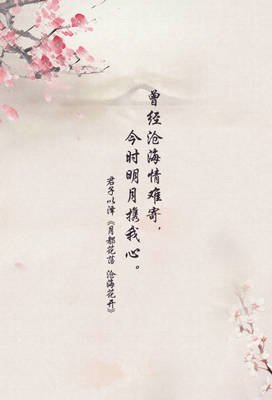 曾经沧海情难寄，
今时明月携我心。
君子以泽《月都花落 沧海花开》